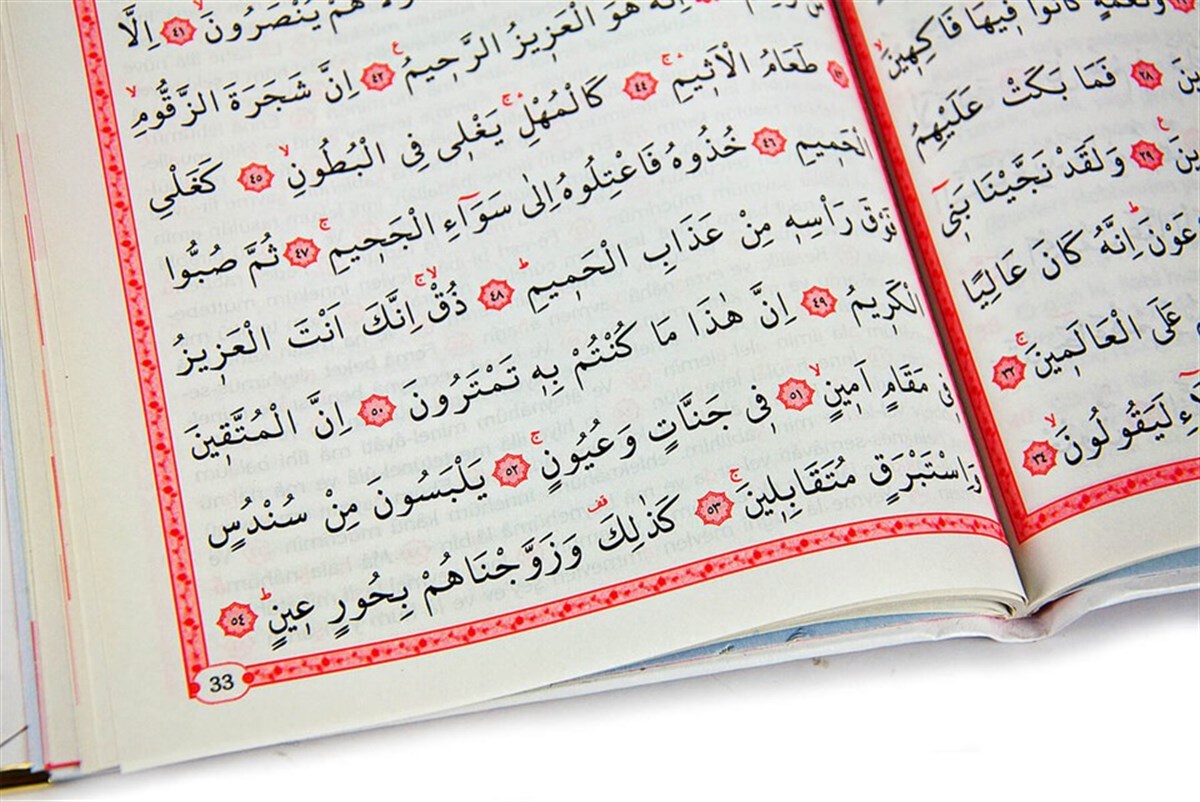 وَنَعْمَةٍ كَانُوا فِيهَا فَاكِهِينَۙ
ينَ ﴿٢٨﴾ فَمَا بَكَتْ عَلَيْهِمُ
ينَ ﴿٢٩﴾ وَلَقَدْ نَجَّيْنَا بَنِٓي
عَوْنَۜ اِنَّهُ كَانَ عَالِيًا
عَلَى الْعَالَمِينَۚ ﴿٣٢﴾
ءِ لَيَقُولُونَۙ ﴿٣٤﴾
هُمْ يُنْصَرُونَۙ ﴿٤١﴾ اِلَّا
اِنَّهُ هُوَ الْعَزِيزُ الرَّحِيمُ۟ ﴿٤٢﴾ اِنَّ شَجَرَةَ الزَّقُّومِۙ
﴿٤٣﴾ طَعَامُ الْاَثِيمِۚۛ ﴿٤٤﴾ كَالْمُهْلِۚۛ يَغْلِي فِي الْبُطُونِۙ ﴿٤٥﴾ كَغَلْيِ
الْحَمِيمِ ﴿٤٦﴾ خُذُوهُ فَاعْتِلُوهُ اِلٰى سَوَٓاءِ الْجَحِيمِۚ ﴿٤٧﴾ ثُمَّ صُبُّوا
فَوْقَ رَاْسِهِ مِنْ عَذَابِ الْحَمِيمِۜ ﴿٤٨﴾ ذُقْۚۙ اِنَّكَ اَنْتَ الْعَزِيزُ
الْكَرِيمُ ﴿٤٩﴾ اِنَّ هٰذَا مَا كُنْتُمْ بِهِ تَمْتَرُونَ ﴿٥٠﴾ اِنَّ الْمُتَّقِينَ
فِي مَقَامٍ اَمِينٍۙ ﴿٥١﴾ فِي جَنَّاتٍ وَعُيُونٍۚ ﴿٥٢﴾ يَلْبَسُونَ مِنْ سُنْدُسٍ
وَاِسْتَبْرَقٍ مُتَقَابِلِينَۚ ﴿٥٣﴾ كَذٰلِكَ۠ وَزَوَّجْنَاهُمْ بِحُورٍ عِينٍۜ ﴿٥٤﴾
33